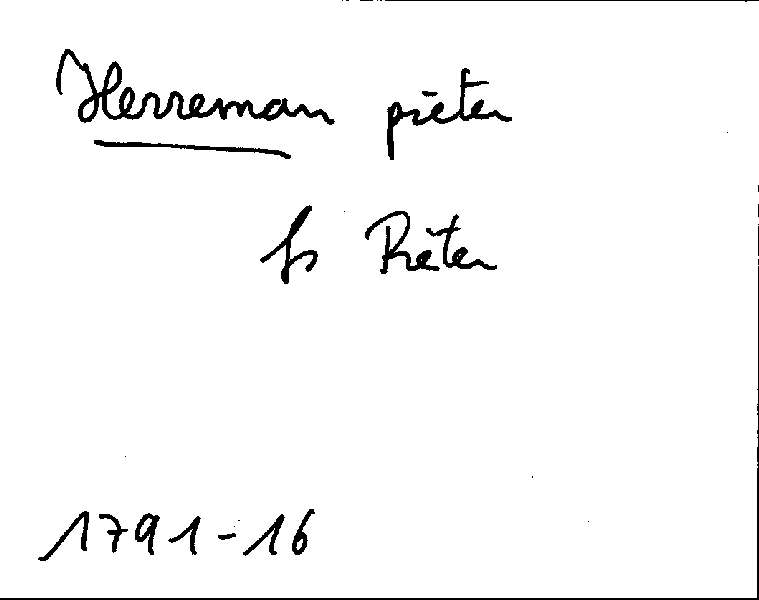 Herreman pieter
fs Pieter
1791-16